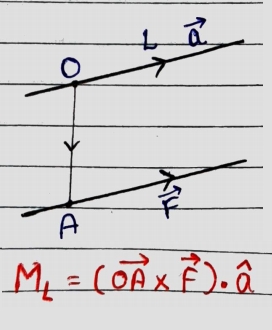 L a⃗
O
A
F⃗
M_L = (O⃗A × F⃗) · â